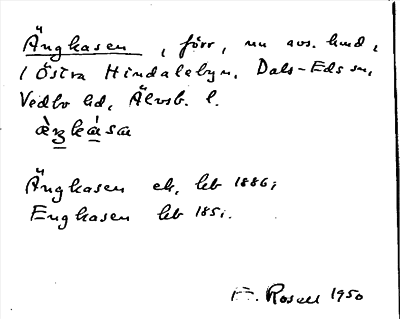 Ängkasen, förr, nu avs. hmd,
i Östra Hindalebyn, Dals-Eds sn,
Vedbo hd, Älvsb. l.
Ängkasen ek, hfb 1886;
Engkasen hfb 185
Rosell 1950